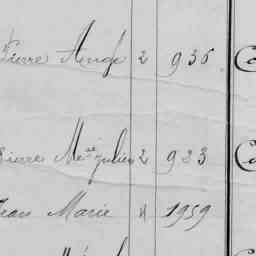 Pierre Ange 2 936 Co
Pierre Me sé Julien 2 933 Co
Jean Marie 4 1959